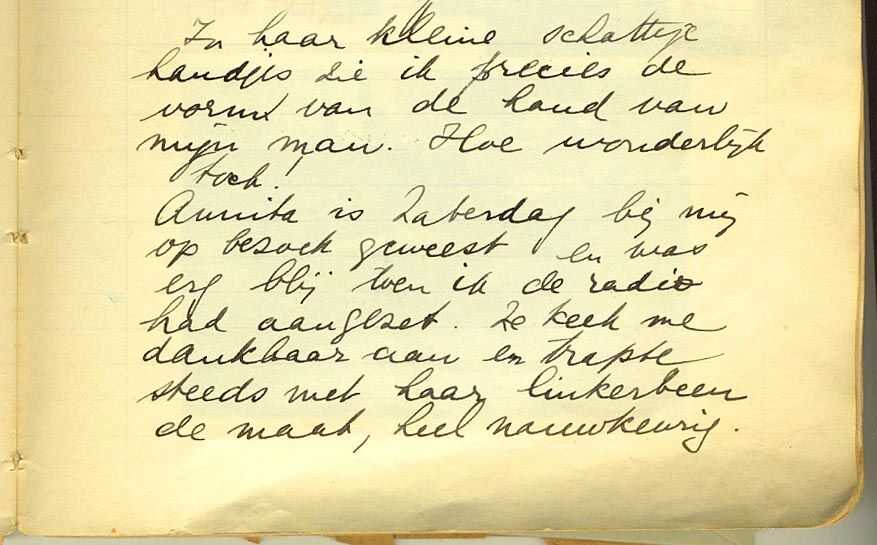 In haar kleine schattige
handjes zie ik precies de
vorm van de hand van
mijn man. Hoe wonderlijk
toch!
Annita is Zaterdag bij mij
op bezoek geweest en was
erg blij toen ik de radio
had aangezet. Ze keek me
dankbaar aan en trapte
steeds met haar linkerbeen
de maat, heel nauwkeurig.